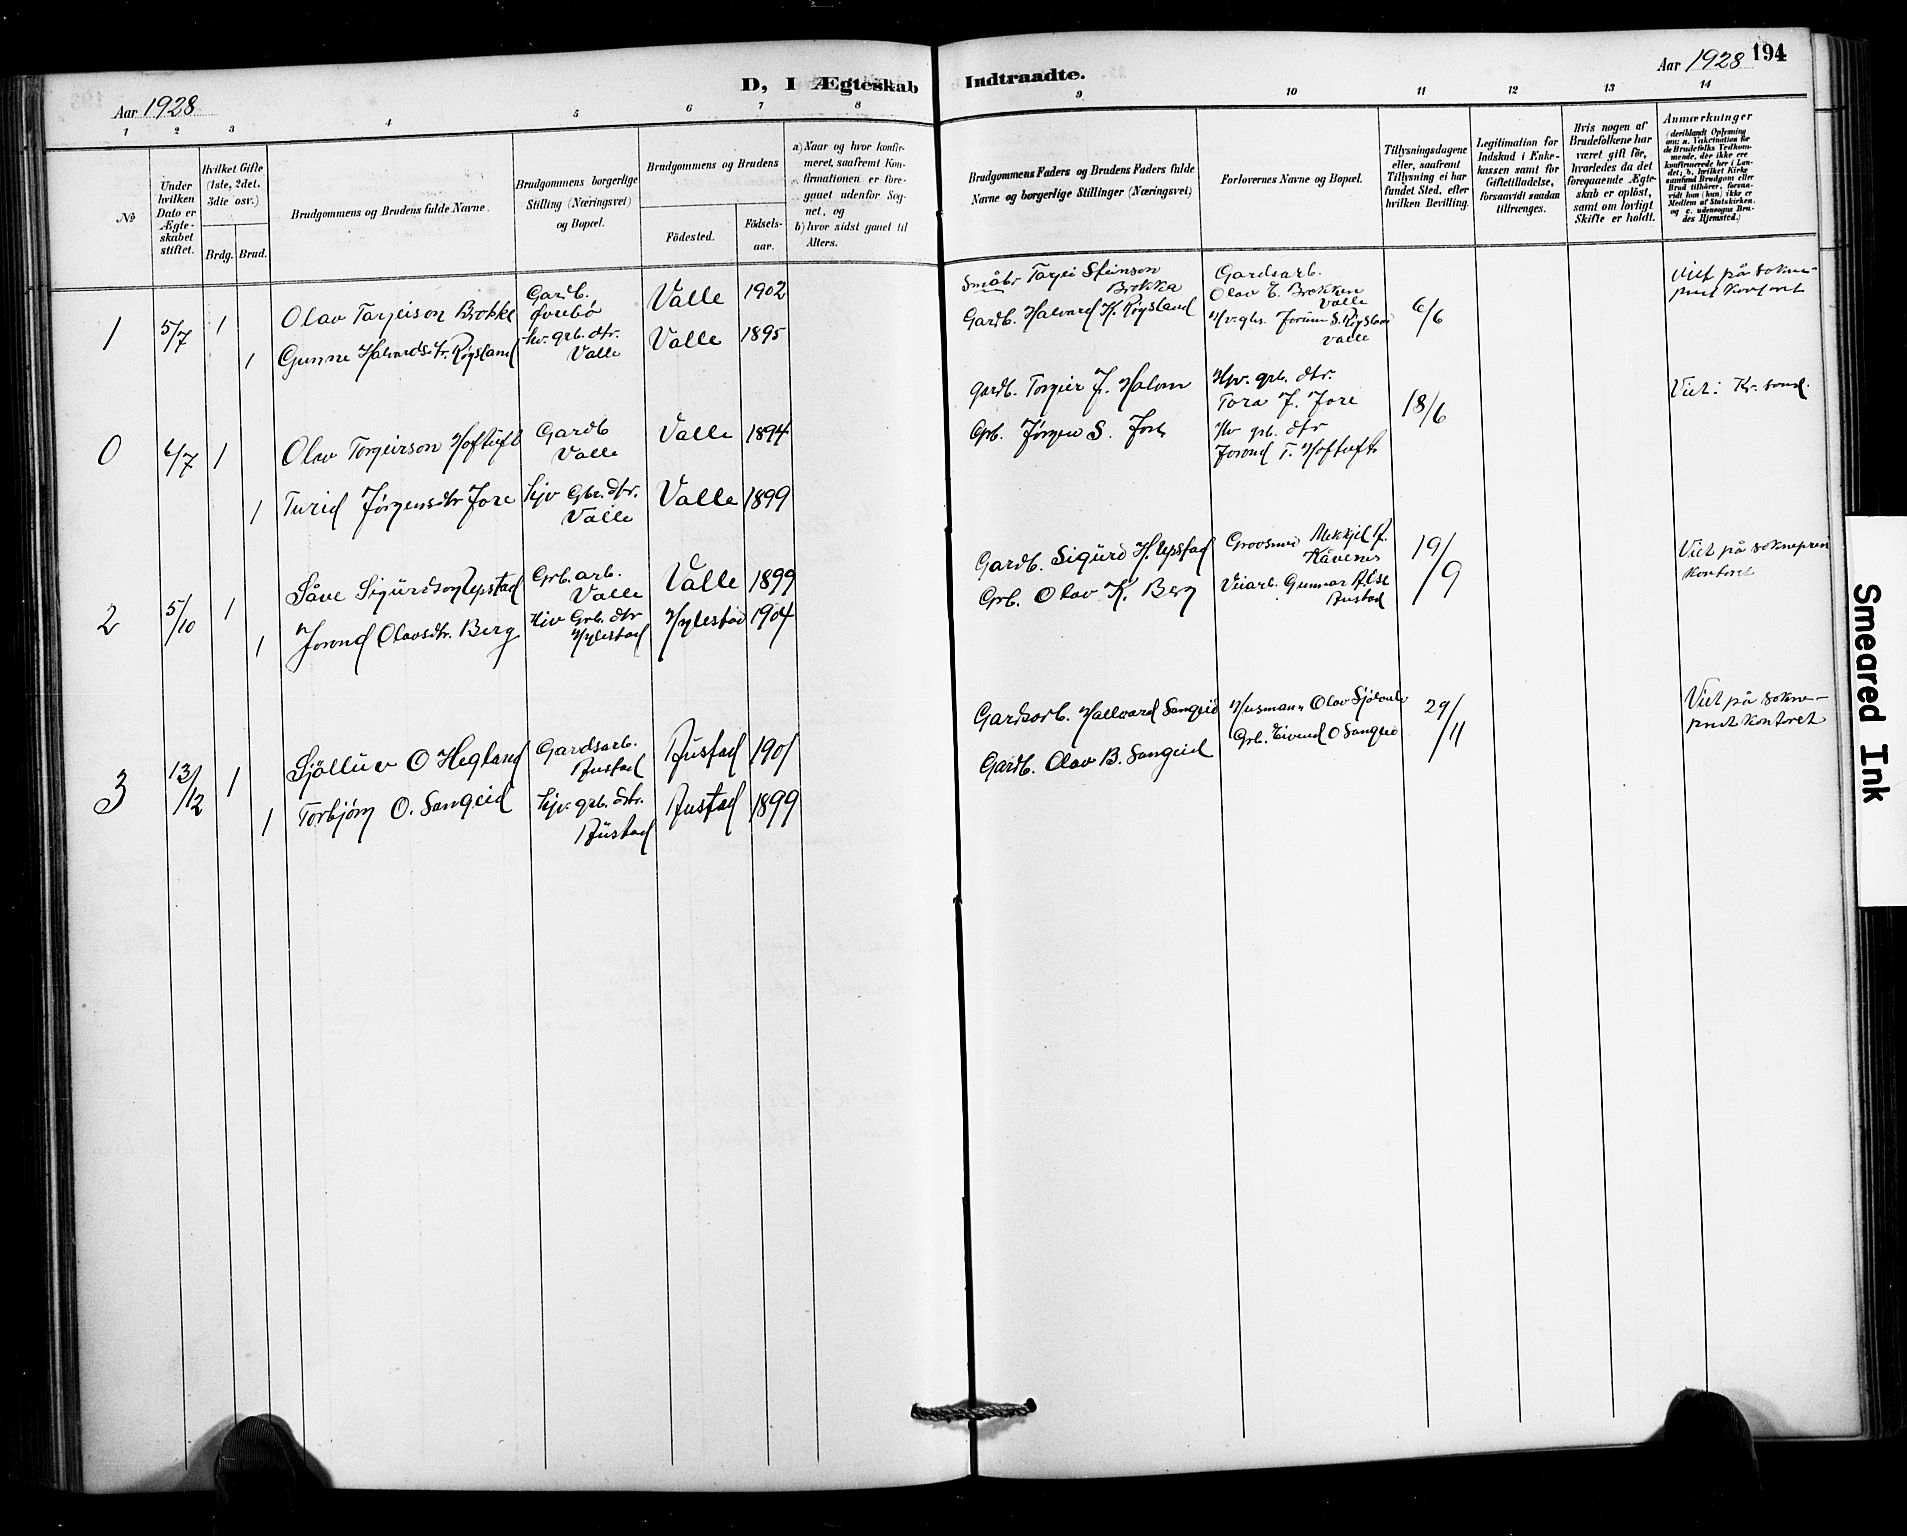 194
Aar 1928
D, I Ægteskab
Indtraadte.
Aar 1928
1 2 3 4 5 6 7 8
9 10 11 12 13 14
No
Under hvilken Dato er Ægteskabet stiftet.
Hvilket Gifte (1ste, 2det, 3die osv.)
Brdg. Brud.
Brudgommens og Brudens fulde Navne.
Brudgommens borgerlige Stilling (Næringsvei) og Bopæl.
Brudgommens og Brudens
Födested.
Födselsaar.
a) Naar og hvor konfirmeret, saafremt Konfirmationen er foregaaet udenfor Sognet, og
b) hvor sidst gaaet til Alters.
Brudgommens Faders og Brudens Faders fulde Navne og borgerlige Stillinger (Næringsvei)
Forlovernes Navne og Bopæl.
Tillysningsdagene eller, saafremt Tillysning ei har fundet Sted, efter hvilken Bevilling.
Legitimation for Indskud i Enkekassen samt for Giftetilladelse, forsaavidt saadan tiltrænges.
Hvis nogen af Brudefolkene har været gift för, hvorledes da det foregaaende Ægteskab er oplöst, samt om lovligt Skifte er holdt.
Anmærkninger
(deriblandt Oplysning om: a. Vakcination for de Brudefolks Vedkommende, der ikke ere konfirmerede her i Landet; b. hvilket Kirkesamfund Brudgom eller Brud tilhörer, forsaavidt han (hun) ikke er Medlem af Statskirken, og c. udensogns Brudes Hjemsted.)
1 5/7 1 Olav Tarjeison Brokke
Gardb.
Valle 1902
1 Gunne Halvardsdtr. Røysland
hv. grb. dtr. Valle
Valle 1895
Småbr Tarjei Steinson Brokka
Gardb. Halvard H. Røysland
Gardsarb. Olav T. Brokken Valle
Valle
6/6
Viet på sokneprestkontoret
0 6/7 1 Olav Torgeirson Hoftuft
Gardb Valle
Valle 1894
1 Turid Jørgensdtr Jore
Hjv Gbr. dtr. Valle
Valle 1899
Gardb. Torgeir J. Halom
Grb. Jørgen S. Jore
Hjv. grb. dtr. Tora J. Jore
Hv grb. dtr Jorond T. Hoftuft
18/6
Viet: Kr. sand.
2 5/10 1 Såve Sigurdson Upstad
Grb. arb. Valle
Valle 1899
1 Jorond Olavsdtr. Berg
Hjv Grb. dtr Hylestad
Hylestad 1904
Gardb. Sigurd H. Upstad
Grb. Olav K. Berg
Veiarb. Gunnar
Austad
19/9
Viet på soknepren kontoret
3 13/12 1 Sjölluv O Hegland
Gardsarb. Austad
Austad 1901
1 Torbjörg O. Sangeid
Hjv. grb. dtr. Austad
Austad 1899
Gardsarb. Hallvard Sangeid
Gardb. Olav B. Sangeid
Husmann Olav
Grb. Eivind O Sangeid
29/11
Viet på sokneprestkontoret
Smeared Ink